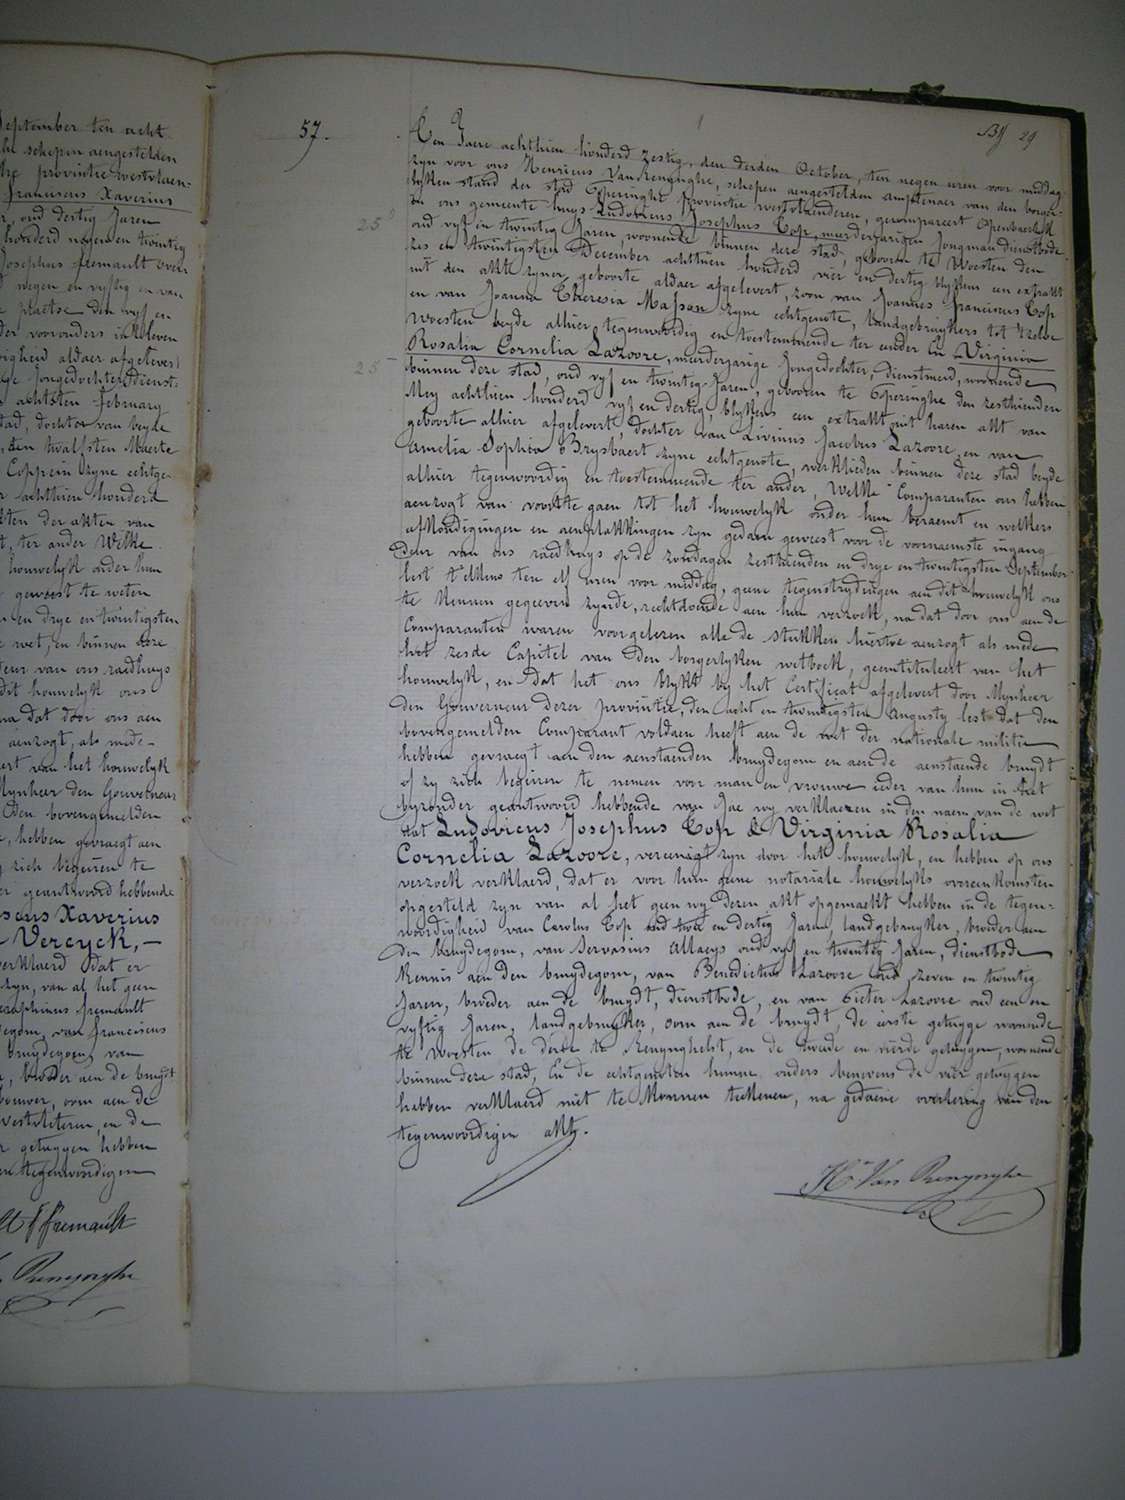 September ten acht
schepen aengestelden
provintie westvlaen-
franciscus Xaverius
oud dertig Jaren
honderd negen en twintig
Josephus fremault
negen en vyftig en van
plaetse den vyf en
der vooronders
aldaer afgelevert
Jongedochter, dienst-
achtsten february
stad, dochter van beyde
den twalfsten Maerte
Coppein zyne echtge-
achthien honderd
der akten van
ter ander Welke
houwelyk onder hun
geweest te weten
en drye en twintigsten
wet, en binnen deze
deur van ons raedhuys
dit houwelyk ons
na dat door ons aen
aenzogt, als mede
van het houwelyk
Mynheer den Gouverneur
den bovengemelden
hebben gevraegt aen
zich begeiren te
geantwoord hebbende
Xaverius
Vercyck,—
verklaerd dat er
zyn, van al het geen
Seraphinus fremault
van franciscus
bruydegom, van
broeder aen de bruydt
oom aen de
Westvleteren, en de
getuygen hebben
tegenwoordigen
fremault
Renynghe
57.
Bij 29
Ten Jaere achthien honderd zestig, den derden October, ten negen uren voor middag
zyn voor ons Henricus Van Renynghe, schepen aengestelden amptenaer van den borger-
lyken stand der stad Poperinghe provintie westvlaenderen, gecompareert openbaerlyk
in ons gemeente huys Ludovicus Josephus Top, meerderjarigen Jongman dienstbode
25
oud vyf en twintig Jaren, woonende binnen deze stad, gebooren te Woesten den
zes en twintigsten December achthien honderd vier en dertig blykens een extrakt
uit den akte zyner geboorte aldaer afgelevert, zoon van Joannes franciscus Top
en van Joanna Theresia Massan zyne echtgenote, landgebruykers tot 't zelve
Woesten beyde alhier tegenwoordig en toestemmende ter eender En Virginia
Rosalia Cornelia Lazoore, meerderjarige Jongedochter, dienstmeid, woonende
25
binnen deze stad, oud vyf en twintig Jaren, gebooren te Poperinghe den zesthienden
Mey achthien honderd vyf en dertig, blykens een extrakt uit haren akt van
geboorte alhier afgelevert, dochter van Livinus Jacobus Lazoore, en van
Amelia Sophia Brysbaert zyne echtgenote, werklieden binnen deze stad beyde
alhier tegenwoordig en toestemmende ter ander, Welke Comparanten ons hebben
aenzogt van voortte gaen tot het houwelyk onder hun beraemt en welkers
afkondigingen en aenplakkingen zyn gedaen geweest voor de voornaemste ingang
deur van ons raedhuys op de zondagen zesthienden en drye en twintigsten September
lest t'elkens ten elf uren voor middag, geene tegenstrydingen aen dit houwelyk ons
te kennen gegeeven zynde, rechtdoende aen hun verzoek, na dat door ons aen de
Comparanten waren voorgelezen alle de stukken hiertoe aenzogt als mede
het zesde Capitel van den borgerlyken wetboek, geentituleert van het
houwelyk, en dat het ons blykt by het Certificat afgelevert door Mynheer
den Gouverneur dezer provintie, den acht en twintigsten Augusty lest dat den
bovengemelden Comparant voldaen heeft aen de wet der nationale militie
hebben gevraegt aen den aenstaenden bruydegom en aen de aenstaende bruydt
of zy zich begeiren te nemen voor man en vrouwe ieder van hun in het
byzonder geantwoord hebbende van Jae wy verklaeren in den naem van de wet
dat Ludovicus Josephus Top & Virginia Rosalia
Cornelia Lazoore, vereenigt zyn door het houwelyk, en hebben op ons
verzoek verklaerd, dat er voor hun geene notariale houwelyks overeenkomsten
opgesteld zyn van al het geen wy dezen akt opgemaekt hebben in de tegen-
woordigheid van Carolus Top oud twee en dertig Jaren, landgebruyker, broeder aen
den bruydegom, van Servasius Allaeys oud vyf en twintig Jaren, dienstbode
kennis aen den bruydegom, van Benedictus Lazoore oud zeven en twintig
Jaren, broeder aen de bruydt, dienstbode, en van Pieter Lazoore oud een en
vyftig Jaren, landgebruyker, oom aen de bruydt, de eerste getuyge woonende
te Woesten de derde te Renynghelst, en de tweede en vierde getuygen, woonende
binnen deze stad, En de echtgenoten hunne ouders benevens de vier getuygen
hebben verklaerd niet te konnen teekenen, na gedaene voorlezing van den
tegenwoordigen akt.
Hri Van Renynghe